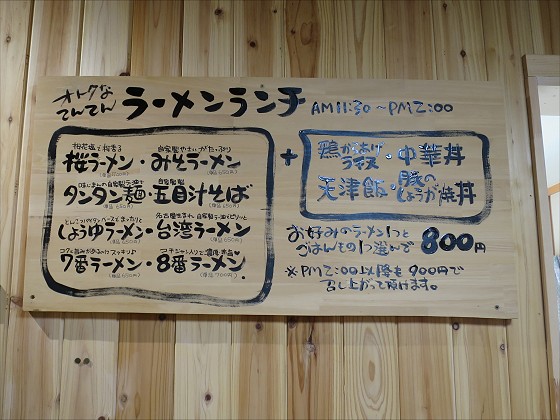 オトクな
てんてん
ラーメンランチ AM11:30～PM2:00
桜花塩で桜香る
自家製やさいがたっぷり
桜ラーメン・みそラーメン
自家製
タンタン麺・五目汁そば
名古屋生まれ
しょうゆラーメン・台湾ラーメン
7番ラーメン・8番ラーメン
+
鶏からあげライス・中華丼
天津飯・豚のしょうが焼丼
お好みのラーメン1つと
ごはんもの1つ選んで 800円
※PM2:00以降も900円で
召し上がって頂けます。